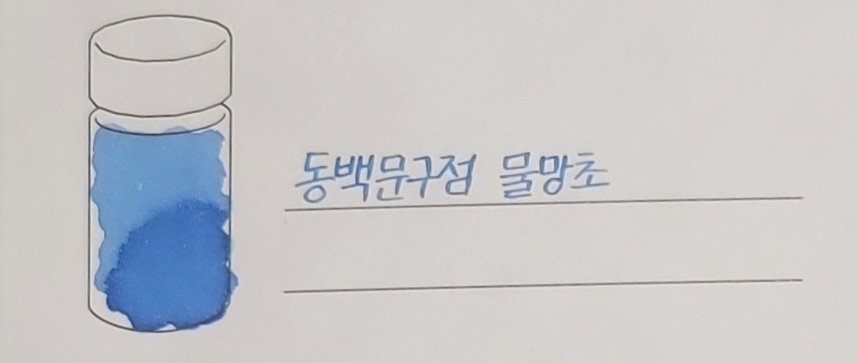 동백문구점 물망초